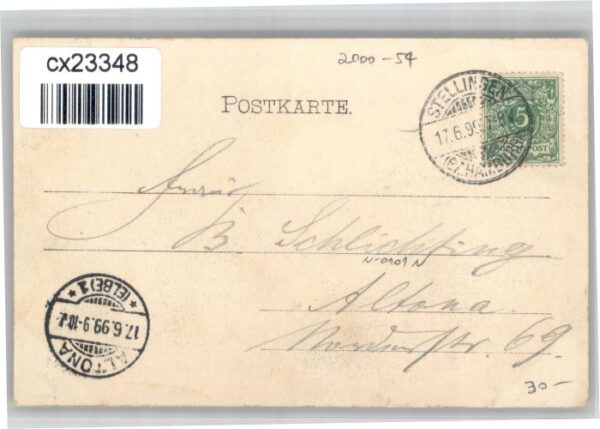 cx23348
2000-54
POSTKARTE.
STELLINGEN
17.6.99
(BZ. HAMBURG)
5
REICHSPOST
B. Schlichting
N-0101 N
Altona
str. 69.
ALTONA
17.6.99.9-10
* (ELBE) 1 *
30-